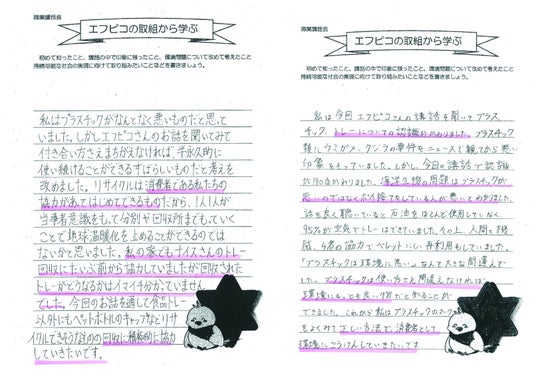 職業講話会
エフピコの取組から学ぶ
初めて知ったこと、講話の中で印象に残ったこと、環境問題について改めて考えたこと
持続可能な社会の実現に向けて取り組みたいことなどを書きましょう。
私はプラスチックがなんとなく悪いものだと思って
いました。しかしエフピコさんのお話を聞いてみて
付き合い方さえまちがえなければ、半永久的に
使い続けることができるすばらしいものだと考えを
改めました。リサイクルは消費者である私たちの
協力があってはじめてできるものだから、1人1人が
当事者意識をもって分別や回収所までもっていく
ことで地球温暖化を止めることができるのでは
ないかと思いました。私の家でもナイスさんのトレー
回収にだいぶ前から協力していましたが回収された
トレーがどうなるかはイマイチ分かっていません
でした。今回のお話を通して食品トレー
以外にもペットボトルのキャップなどリサ
イクルできそうなものの回収に積極的に協力
していきたいです。
職業講話会
エフピコの取組から学ぶ
初めて知ったこと、講話の中で印象に残ったこと、環境問題について改めて考えたこと
持続可能な社会の実現に向けて取り組みたいことなどを書きましょう。
私は今日エフピコさんの講話を聞いてプラス
チック、トレーについての認識がかわりました。プラスチック
類はウミガメ、クジラの事件をニュースで観てから悪い
印象をもっていました。しかし、今日の講話で認識
が180°かわりました。海洋生物の問題はプラスチックが
悪いのではなくポイ捨てをしている人が悪いとわかりました。
話を良く聴いていると石油をほとんど使用していなく、
95%が空気でトレーはできていました。その上、人間と機
械、今者の協力でペレットにし、再利用もしていました。
「プラスチックは環境に悪い」なんて大きな間違えで
した。プラスチックは使い方さえ間違えなければ
環境にもとても良い物だと知ることが
できました。これから私はプラスチックのマーク
をよくみて正しい方法で、消費者として
環境にこうけんしていきたいです。